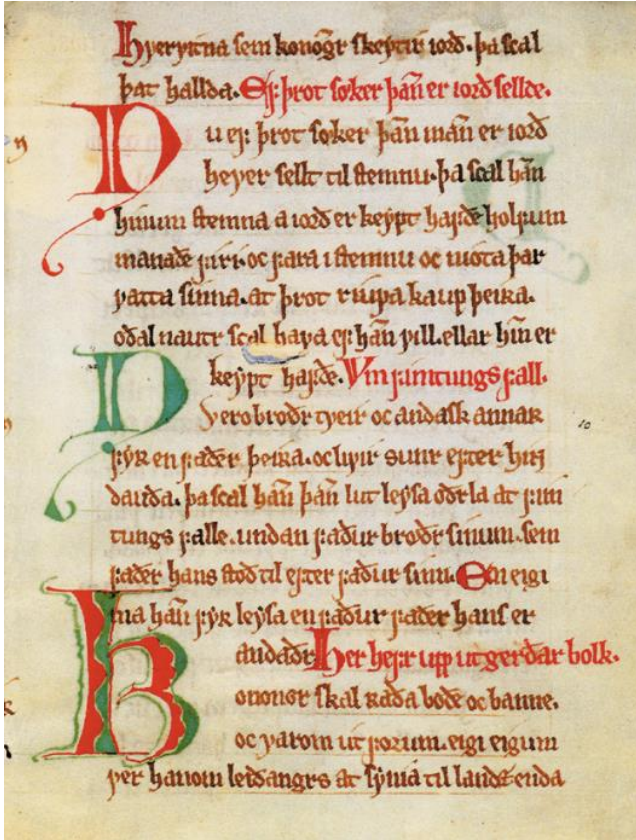 Hvervitna sem konongr skeytir iorð. þa scal
þat hallda. Ef þrot soker þan̄ er iorð sellde.
Nu ef þrot soker þan̄ man̄ er iorð
hever sellt til stemnu. þa scal han̄
hinum stemna a iorð er keypt hafðe holfum
manaðe firi. oc fara i stemnu oc niota þar
vatta sinna. at þrot riupa kaup þeira.
oðal nautr scal hava ef han̄ vill. ellar hin er
keypt hafðe. Um fimtungs fall.
Nu ero brøðr tveir oc andask annar
fyR en faðer þeira. oc livir sunr efter hin
dauða. þa scal han̄ þan̄ lut leysa oðrla at fim
tungs falle. undan faður brøðr sinum. sem
faðer hans stoð til efter faður sinn. En eigi
ma han̄ fyR leysa en faður faðer hans er
andaðr. Her hefr upp utgerðar bolk.
Kononor skal raða boðe oc banne.
oc varom ut forum. eigi eigum
ver hanom leiðangrs at synia til landz enda